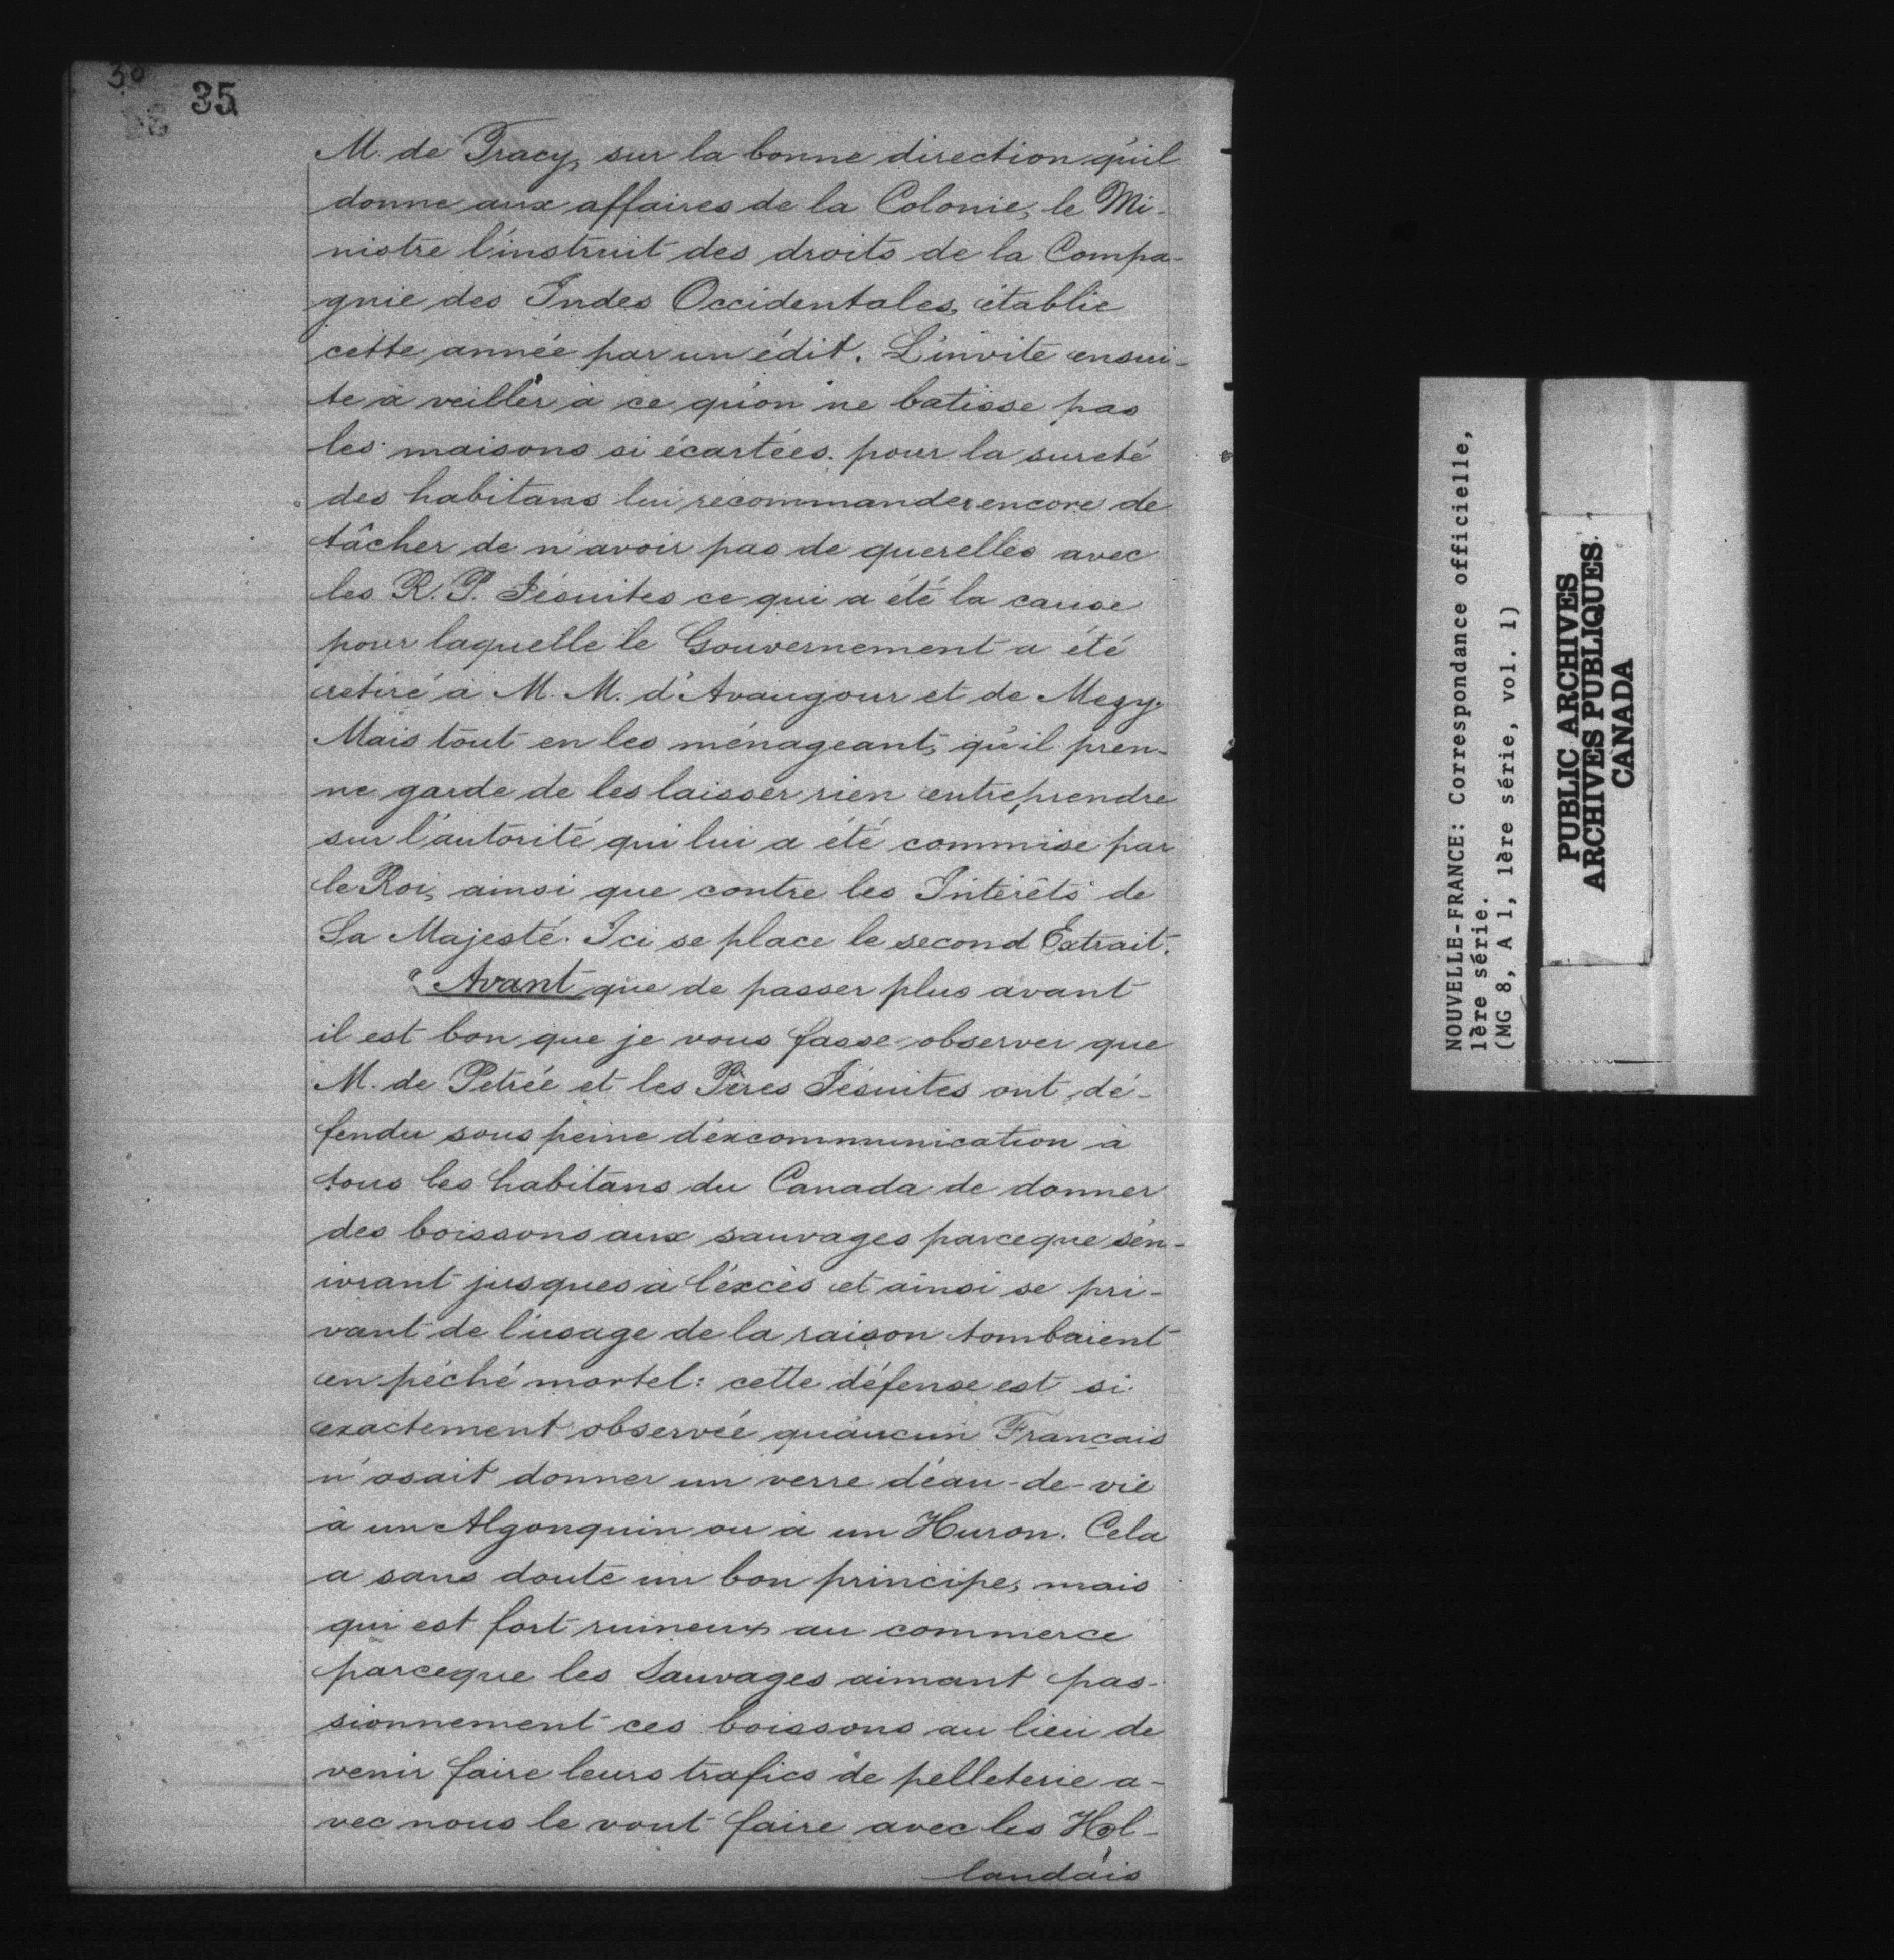 35
M. de Tracy, sur la bonne direction qu'il
donne aux affaires de la Colonie, le Mi-
nistre l'instruit des droits de la Compa-
gnie des Indes Occidentales, établie
cette année par un édit. L'invite ensui-
te à veiller à ce qu'on ne batisse pas
les maisons si écartées. pour la sureté
des habitans lui recommander encore de
tâcher de n'avoir pas de querelles avec
les R. P. Jésuites ce qui a été la cause
pour laquelle le Gouvernement a été
retiré à M. M. d'Avaugour et de Mezy.
Mais tout en les ménageant, qu'il pren-
ne garde de les laisser rien entreprendre
sur l'autorité qui lui a été commise par
le Roi, ainsi que contre les Intérêts de
Sa Majesté. Ici se place le second Extrait.
"Avant que de passer plus avant
il est bon que je vous fasse observer que
M. de Petrée et les Pères Jésuites ont dé-
fendu sous peine d'excommunication à
tous les habitans du Canada de donner
des boissons aux sauvages parceque s'en-
ivrant jusques à l'excès et ainsi se pri-
vant de l'usage de la raison tombaient
en péché mortel: cette défense est si
exactement observée qu'aucun Français
n'osait donner un verre d'eau-de-vie
à un Algonquin ou à un Huron. Cela
a sans doute un bon principe, mais
qui est fort ruineux au commerce
parceque les Sauvages aimant pas-
sionnement ces boissons au lieu de
venir faire leurs trafics de pelleterie a-
vec nous le vont faire avec les Hol-
landais
NOUVELLE-FRANCE: Correspondance officielle,
1ère série.
(MG 8, A 1, 1ère série, vol. 1)
PUBLIC ARCHIVES
ARCHIVES PUBLIQUES
CANADA